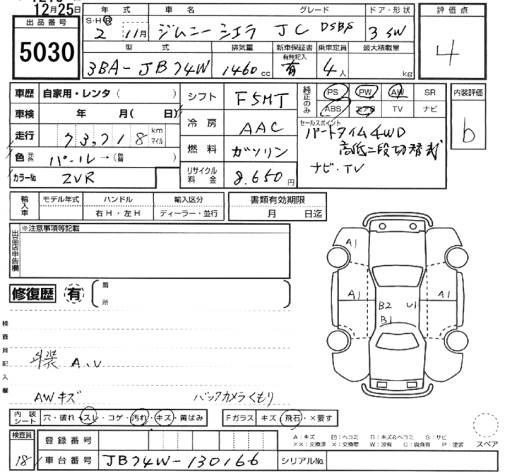 12月25日
出品番号
5030
年式 車名 グレード ドア・形状
S・H・R 2年 11月 ジムニー シエラ JC DSBS 3 SW
型式 排気量 新車保証書 乗車定員 最大積載量
有無記入
3BA-JB74W 1460cc 有 4人 kg
評価点
4
車歴 自家用・レンタ( )
車検 年 月( 日)
走行 73,718 km マイル
色 パール→( )
カラーNo ZVR
シフト F5MT
冷房 AAC
燃料 ガソリン
リサイクル料金 8,650円
純正のみ PS PW AW SR
ABS エアB TV ナビ
セールスポイント
パートタイム4WD
高低二段切替式
ナビ・TV
内装評価
b
輸入車 モデル年式 ハンドル 輸入区分
右H・左H ディーラー・並行
書類有効期限
月 日迄
出品店申告欄
※注意事項等記載
修復歴 有 箇所
検査員記入欄
A1 A1
A1 A1
B2 U1
B1
A、U
AWキズ バックカメラくもり
内装シート 穴・破れ・スレ・コゲ・汚れ・キズ・黄ばみ
Fガラス キズ・飛石・×要す
検査員
18
登録番号
車台番号 JB74W-130166 シリアルNo.
スペア